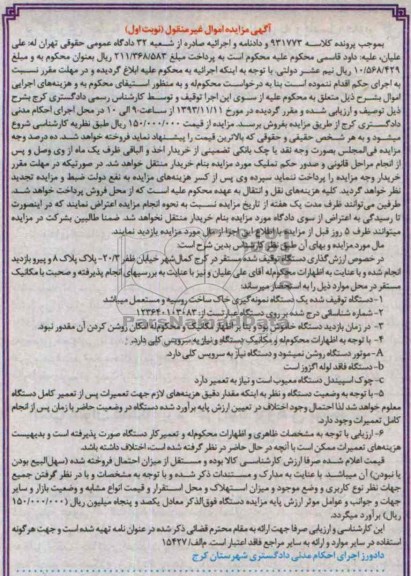 آگهی مزایده اموال غیر منقول (نوبت اول)
بموجب پرونده کلاسه ۹۳۱۷۷۳ و دادنامه و اجرائیه صادره از شعبه ۳۲ دادگاه عمومی حقوقی تهران له: علی
علیان، علیه: داود قاسمی محکوم علیه محکوم است به پرداخت مبلغ ۲۱۱/۳۶۸/۵۸۳ ریال بعنوان محکوم به و مبلغ
۱۰/۵۶۸/۴۲۹ ریال نیم عشر دولتی. با توجه به اینکه اجرائیه به محکوم علیه ابلاغ گردیده و در مهلت مقرر نسبت
به اجرای حکم اقدام ننموده است بنا به درخواست محکوم‌له و به منظور استیفای محکوم به و هزینه‌های اجرایی
اموال بشرح ذیل متعلق به محکوم علیه از سوی این اجرا توقیف و توسط کارشناس رسمی دادگستری کرج بشرح
ذیل توصیف و ارزیابی شده و مقرر گردیده در مورخ ۱۳۹۳/۱۱/۱۱ از ساعت ۹ الی ۱۰ در محل اجرای احکام مدنی
دادگستری کرج از طریق مزایده بفروش برسد. مزایده از قیمت ۱۵۰/۰۰۰/۰۰۰ ریال طبق نظریه کارشناسی شروع
میشود و به هر شخص حقیقی و حقوقی که بالاترین قیمت را پیشنهاد نماید فروخته خواهد شد. ده درصد وجه
مزایده فی‌المجلس بصورت وجه نقد یا چک بانکی تضمینی از خریدار اخذ و الباقی ظرف یک ماه از وی وصل و پس
از انجام مراحل قانونی و صدور حکم تملیک مورد مزایده بنام خریدار منتقل خواهد شد. در صورتیکه در مهلت مقرر
خریدار وجه مزایده را پرداخت ننماید سپرده وی پس از کسر هزینه‌های مزایده به نفع دولت ضبط و مزایده تجدید
نظر خواهد گردید. کلیه هزینه‌های نقل و انتقال به عهده محکوم علیه است که از محل فروش پرداخت خواهد شد.
طرفین می‌توانند ظرف مدت یک هفته از تاریخ مزایده نسبت به نحوه انجام مزایده اعتراض نمایند که در اینصورت
تا رسیدگی به اعتراض از سوی دادگاه مورد مزایده بنام خریدار منتقل نخواهد شد. ضمنا طالبین شرکت در مزایده
میتوانند ظرف ۵ روز قبل از مزایده با اطلاع این اجرا از مال مورد مزایده بازدید نمایند.
مال مورد مزایده و بهای آن طبق نظر کارشناس بدین شرح است:
در خصوص ارزش‌گذاری دستگاه توقیف شده مستقر در کرج کمال‌شهر خیابان ظفر ۲۰/۳- پلاک ۸ و پیرو بازدید
انجام شده و با عنایت به اظهارات محکوم‌له آقای علی علیان و نیز با عنایت به بررسیهای انجام پذیرفته و صحبت با مکانیک
مستقر در محل موارد ذیل را به استحضار میرساند:
۱-دستگاه توقیف شده یک دستگاه نمونه گیری خاک ساخت روسیه و مستعمل میباشد
۲-شماره شناسائی درج شده بر روی دستگاه عبارتست از: ۱۲۳۶۴۰۱۰۳۰۸۳
۳- در زمان بازدید دستگاه خاموش بود و بنا بر اظهار مکانیک و محکوم‌له امکان روشن کردن آن مقدور نبود.
۴- با توجه به اظهارات محکوم‌له و مکانیک دستگاه و نیاز به سرویس کلی دارد.
A-موتور دستگاه روشن نمیشود و دستگاه نیاز به سرویس کلی دارد.
b-دستگاه فاقد لوله اگزوز است
c-چوک اسپیندل دستگاه معیوب است و نیاز به تعمیر دارد
۵-با توجه به وضعیت دستگاه و نظر به اینکه مقدار دقیق هزینه‌های لازم جهت تعمیرات پس از تعمیر کامل دستگاه
معلوم خواهد شد، لذا احتمال وجود اختلاف در تعیین ارزش پایه برآورد شده دستگاه در وضعیت حاضر با زمان پس از انجام
کامل تعمیرات وجود دارد.
۶- ارزیابی با توجه به مشخصات ظاهری و اظهارات محکوم‌له و تعمیرکار دستگاه صورت پذیرفته است و بدیهیست
هزینه‌های تعمیرات ممکن است با آنچه در حال حاضر در نظر گرفته شده است، اختلاف داشته باشد.
قیمت اعلام شده صرفا ارزش کارشناسی کالا بوده و مستقل از میزان احتمال فروخته شده (سهل‌البیع بودن
یا نبودن) آن میباشد. با عنایت به مدارک و مستندات ذکر شده و با توجه به مشخصات و با در نظر گرفتن جمیع
جهات نظر نوع کاربری و وضع موجود و میزان استهلاک و محل استقرار و قیمت انواع مشابه و وضعیت بازار و سایر
جهات و جوانب و عوامل موثر ارزش پایه مزایده دستگاه فوق‌الذکر معادل یکصد و پنجاه میلیون ریال (۱۵۰/۰۰۰/۰۰۰
ریال) برآورد میگردد.
این کارشناسی و ارزیابی صرفا جهت ارائه به مقام محترم قضائی ذکر شده در عنوان نامه تهیه شده است و جهت هرگونه
استفاده در سایر موارد و ارائه به سایر مراجع فاقد اعتبار است. م/الف/۱۵۴۲۷
دادورز اجرای احکام مدنی دادگستری شهرستان کرج